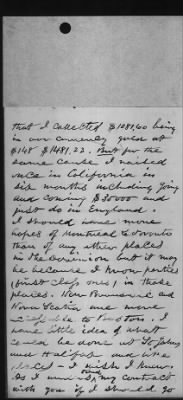 that I collected $1081.60 being
in our currency gold at
$148 $1481.22. But for the
same cause I raised
once in California in
six months including going
and coming $30000 and
just so in England.
I should have more
hopes of Montreal & Toronto
than of any other places
in the Dominion but it may
be because I know parties
(first class ones) in those
places. New Brunswick and
Nova Scotia are more
to Boston. I
have little idea of what
could be done at St Johns
and Halifax and like
places – I wish I knew.
As I understand my contract
with you if I should go